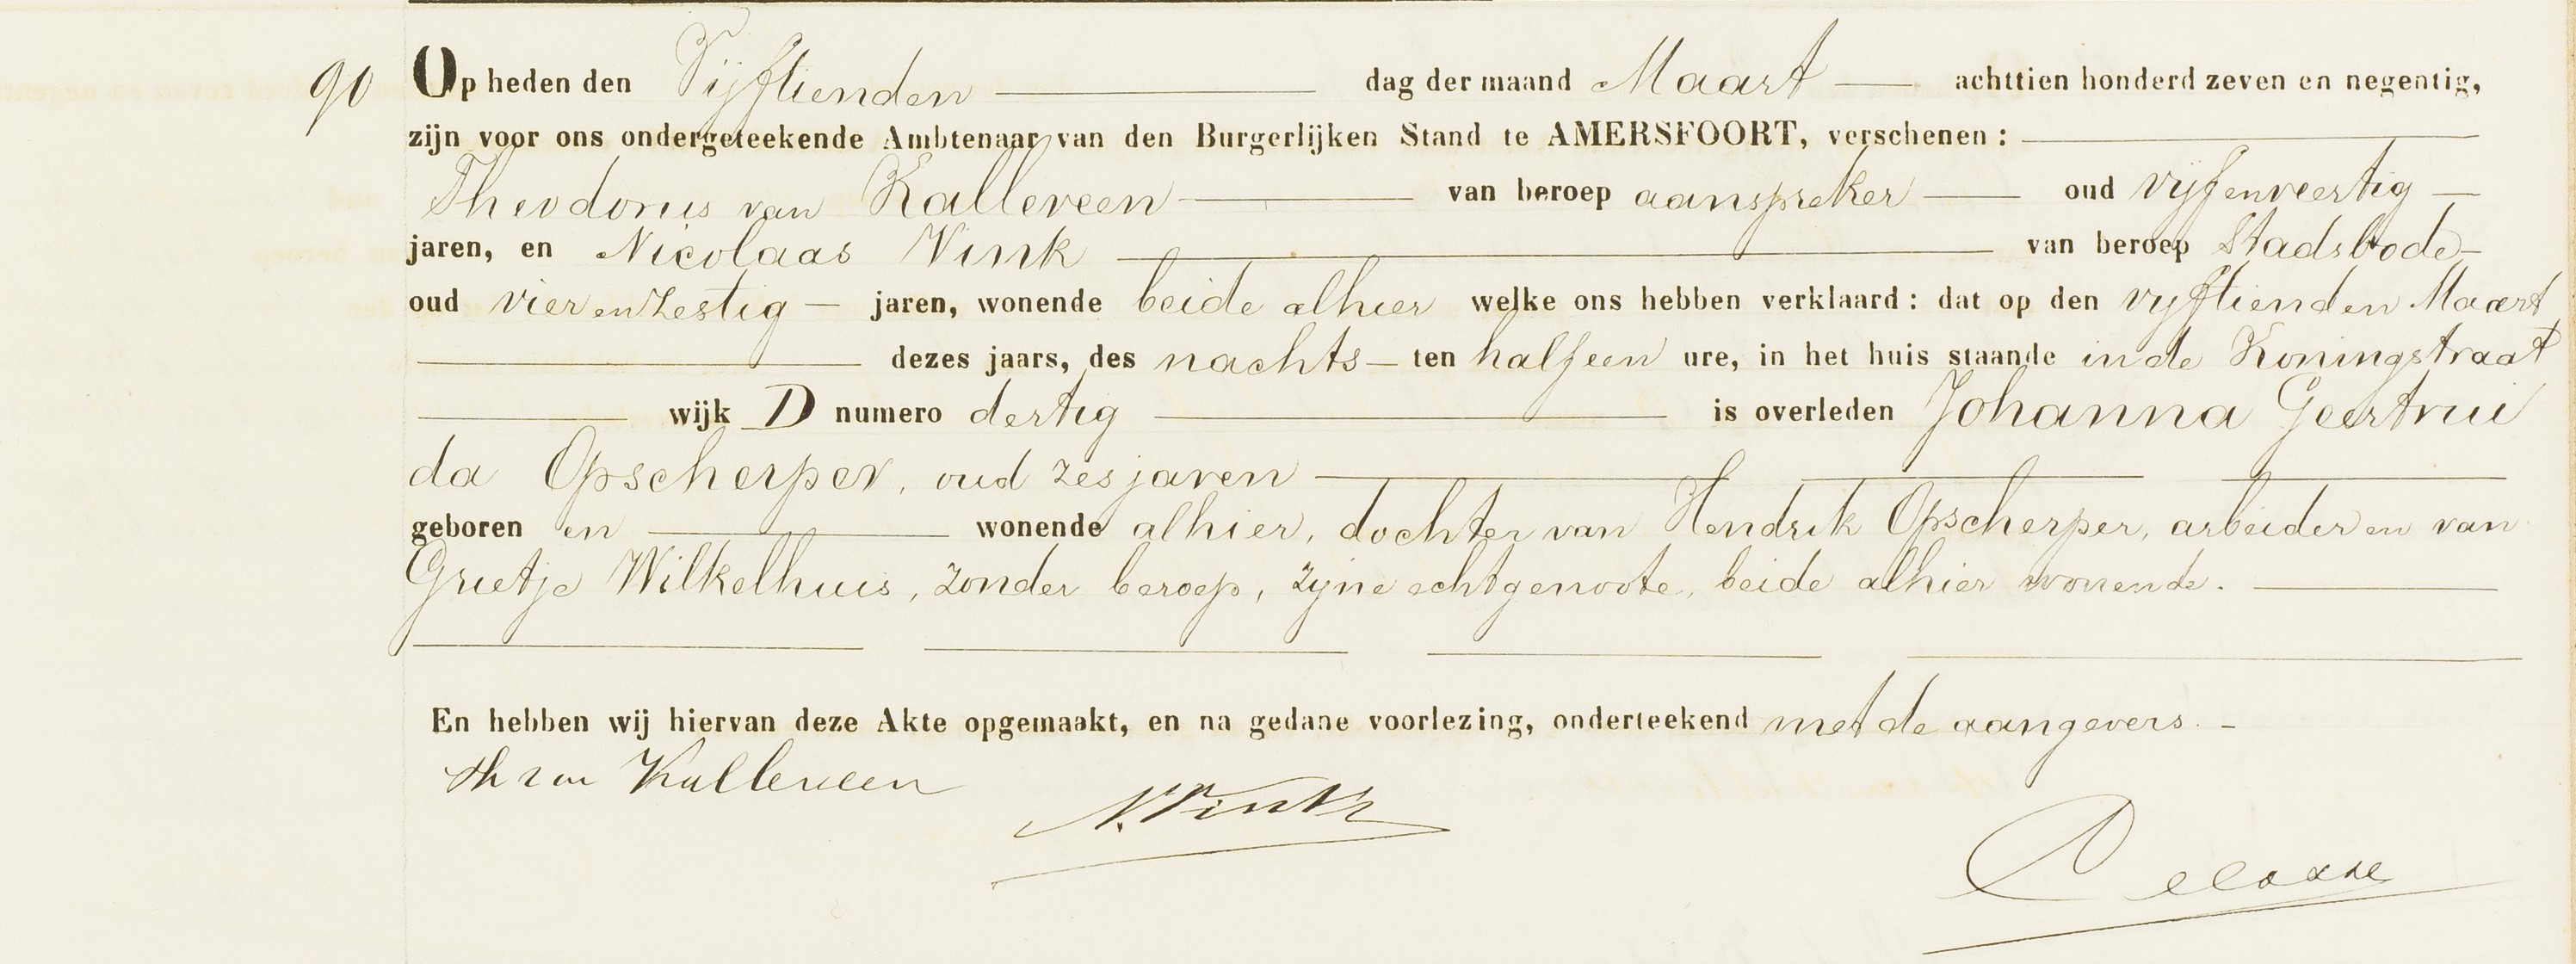 90 Op heden den Vijftienden dag der maand Maart achttien honderd zeven en negentig,
zijn voor ons ondergeteekende Ambtenaar van den Burgerlijken Stand te AMERSFOORT, verschenen :
Theodorus van Kalleveen van beroep aanspreker oud vijfenveertig
jaren, en Nicolaas Vink van beroep Stadsbode
oud vierenzestig jaren, wonende beide alhier welke ons hebben verklaard : dat op den vijftienden Maart
dezes jaars, des nachts ten half een ure, in het huis staande in de Koningstraat
wijk D numero dertig is overleden Johanna Geertrui
da Opscherper, oud zes jaren
geboren en wonende alhier, dochter van Hendrik Opscherper, arbeider en van
Grietje Wilkelhuis, zonder beroep, zijne echtgenoote, beide alhier wonende.
En hebben wij hiervan deze Akte opgemaakt, en na gedane voorlezing, onderteekend met de aangevers.
Th van Kalleveen
N. Vink